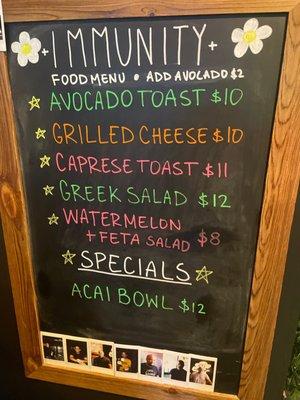 +IMMUNITY+
FOOD MENU • ADD AVOCADO $2
AVOCADO TOAST $10
GRILLED CHEESE $10
CAPRESE TOAST $11
GREEK SALAD $12
WATERMELON
+ FETA SALAD $8
SPECIALS
ACAI BOWL $12